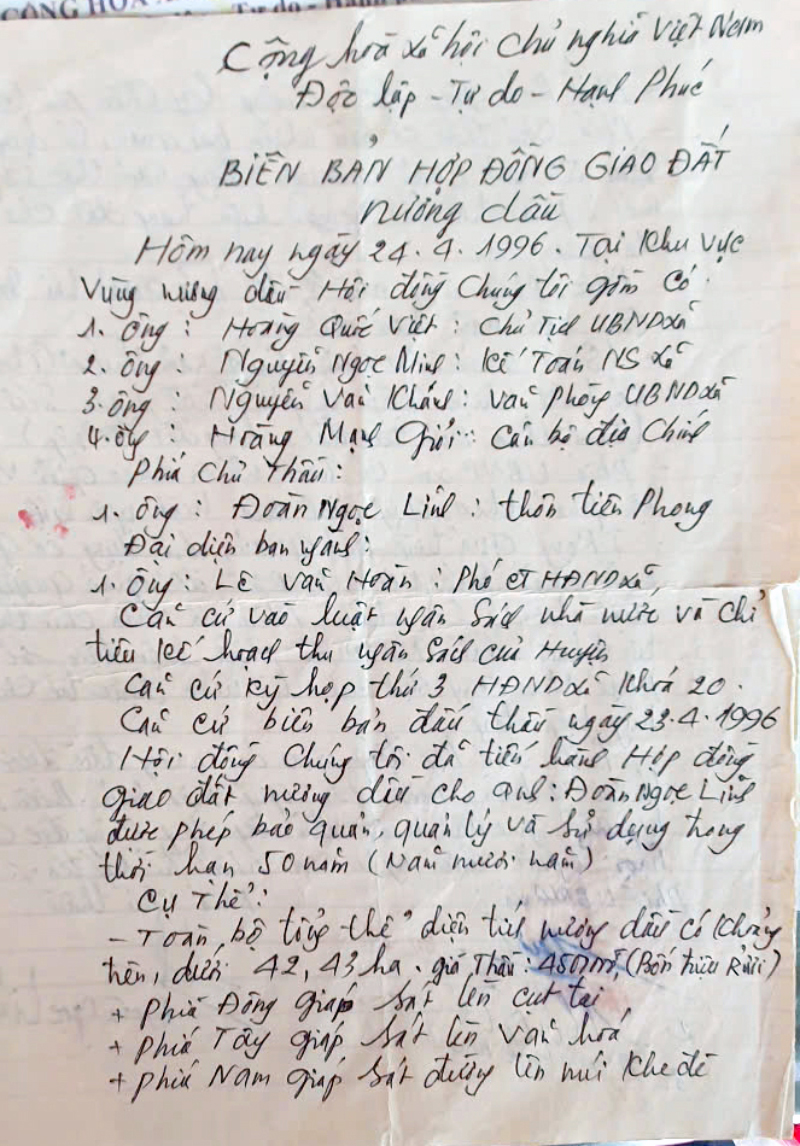 CỘNG HOÀ
Tự do - Hạnh
Cộng hoà xã hội chủ nghĩa Việt Nam
Độc lập - Tự do - Hạnh Phúc
BIÊN BẢN HỢP ĐỒNG GIAO ĐẤT
nương dâu
Hôm nay ngày 24.4.1996. Tại Khu vực
Vùng nương dâu Hội đồng Chúng tôi gồm có.
1. Ông : Hoàng Quốc Việt : Chủ Tịch UBND xã
2. Ông : Nguyễn Ngọc Minh : Kế Toán NS xã
3. Ông : Nguyễn Văn Khánh : Văn phòng UBND xã
4. Ông : Hoàng Mạnh Giỏi : Cán bộ địa Chính
Phía Chủ Thầu :
1. Ông : Đoàn Ngọc Linh : thôn tiên Phong
Đại diện ban ngành :
1. Ông : Lê Văn Hoàn : Phó CT HĐND xã,
Căn cứ vào luật ngân Sách nhà nước và chỉ
tiêu Kế hoạch thu ngân Sách của Huyện
Căn cứ Kỳ họp thứ 3 HĐND xã Khoá 20.
Căn cứ biên bản đấu thầu ngày 23.4.1996
Hội đồng Chúng tôi đã tiến hành Hợp đồng
giao đất nương dâu cho anh : Đoàn Ngọc Linh
được phép bảo quản, quản lý và Sử dụng trong
thời hạn 50 năm (Năm mươi năm)
Cụ Thể :
- Toàn bộ tổng thể diện tích nương dâu có Khoảng
trên, dưới 42,43 ha. giá Thầu : (Bốn triệu Rưỡi)
+ Phía Đông giáp Sát lèn cụt tai
+ Phía Tây giáp Sát lèn Văn hoá
+ Phía Nam giáp Sát đường lên núi Khe đé